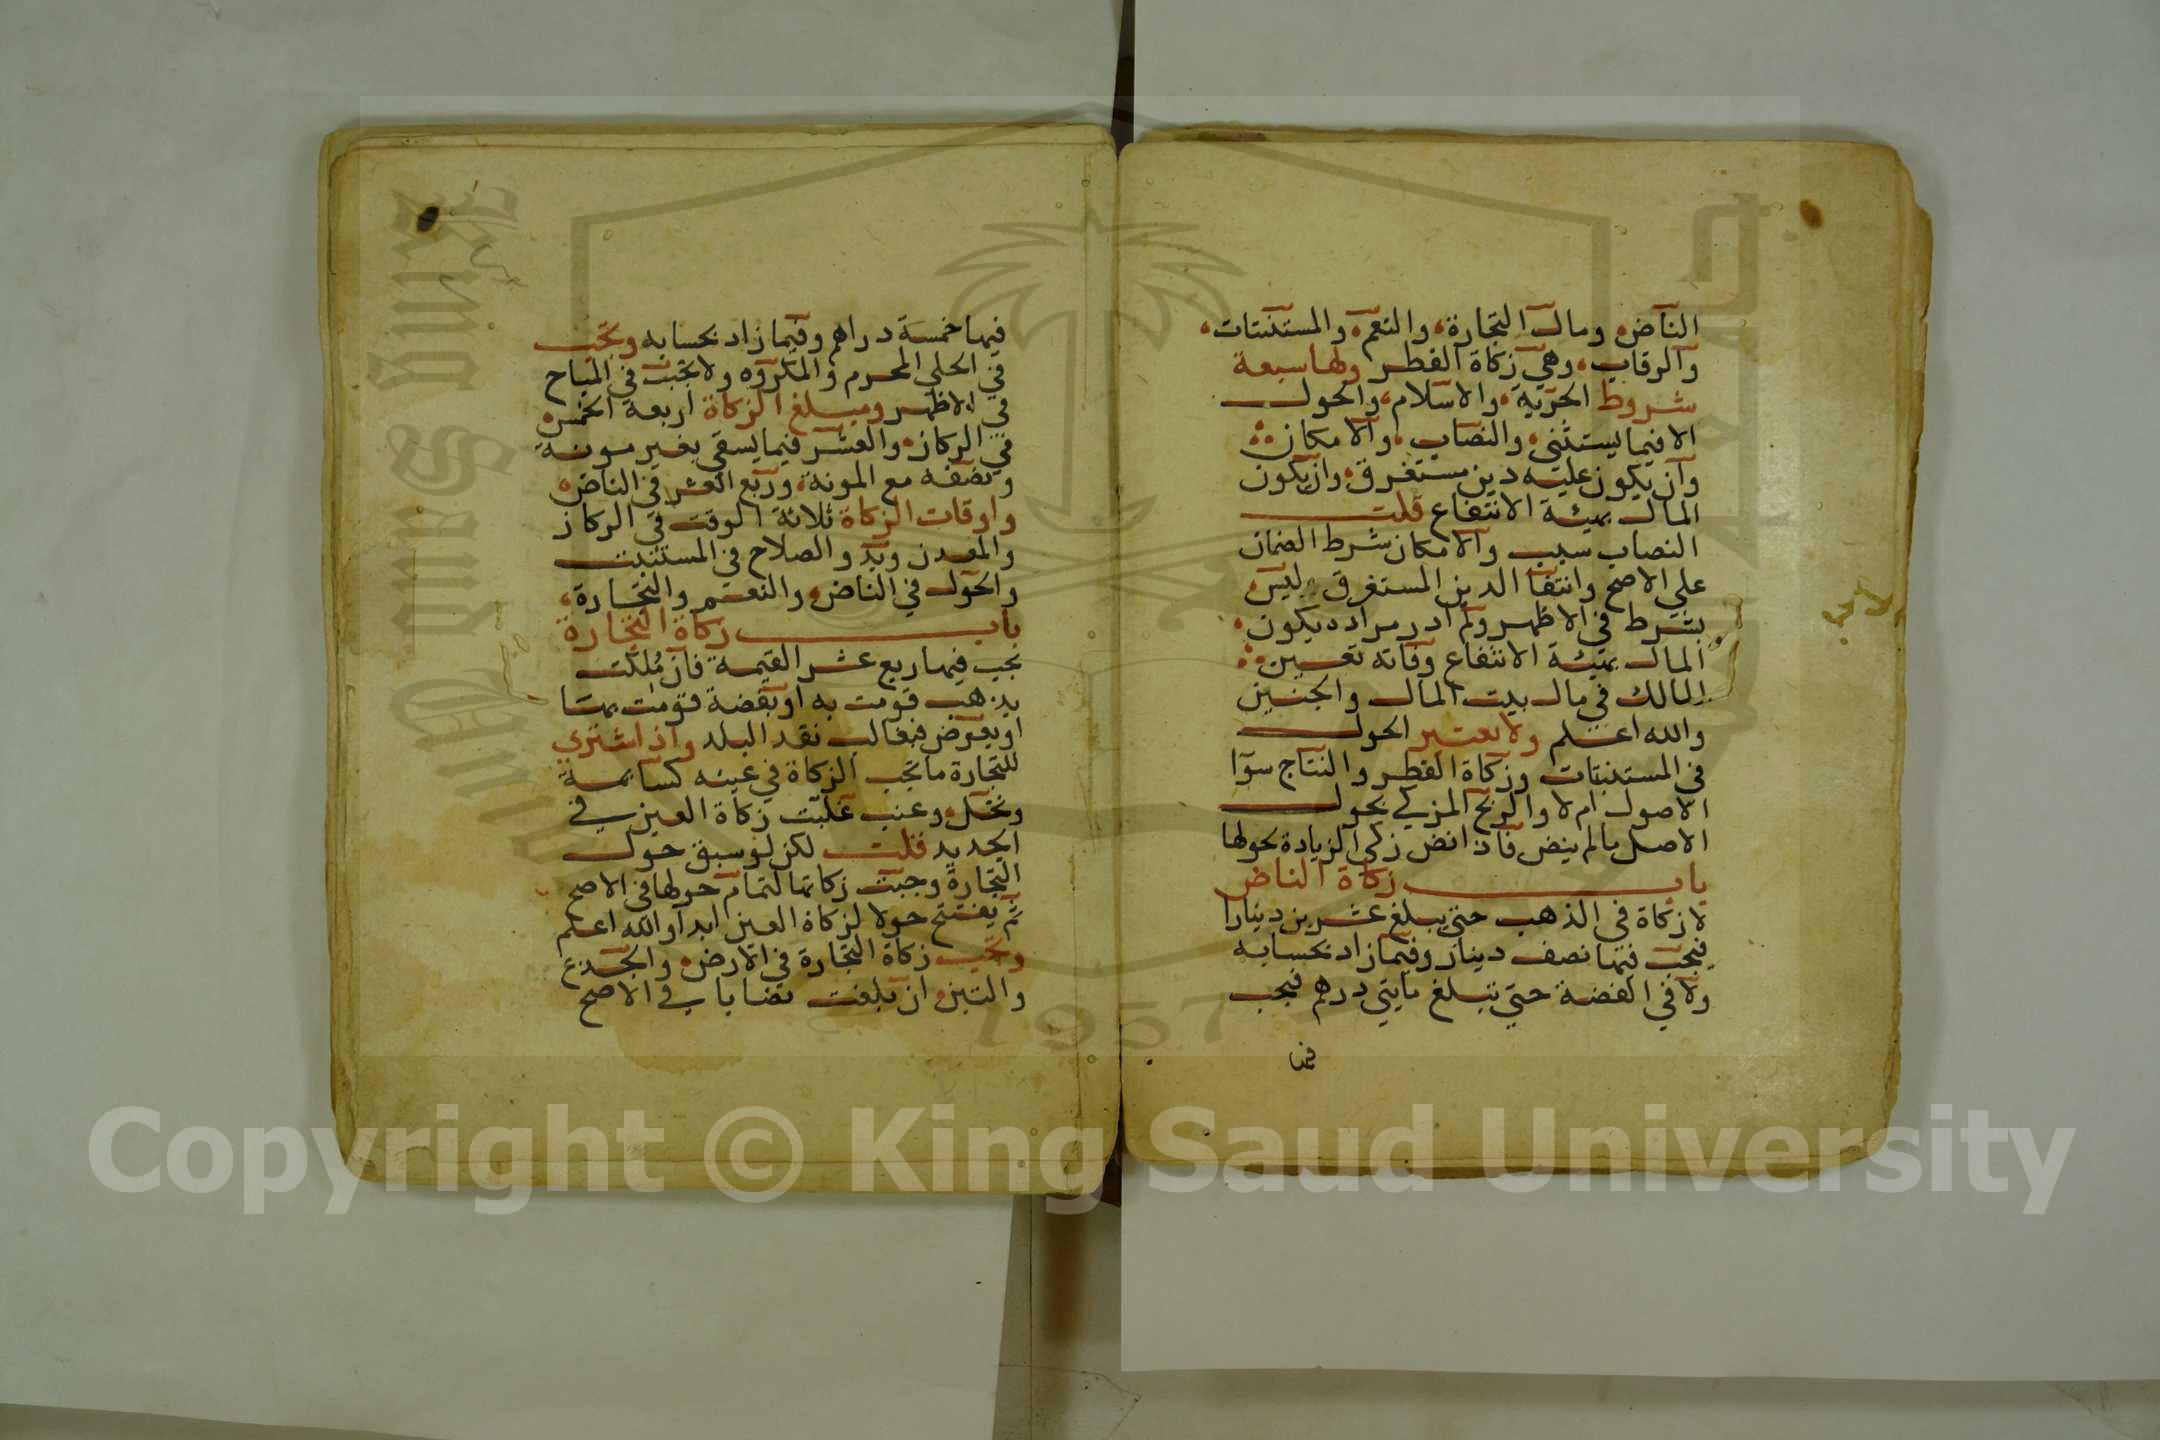 الناض ومال التجارة والنعم والمستنبتات
والرقاب وهي زكاة الفطر ولها سبعة
شروط الحرية والاسلام والحول
الا فيما يستثنى والنصاب والامكان
وان يكون عليه دين مستغرق وان يكون
المال بهيئة الانتفاع قلت
النصاب سبب والامكان شرط الضمان
علي الاصح وانتفا الدين المستغرق ليس
بشرط في الاظهر ولم ادر مراده بكون
المال بهيئة الانتفاع وفاته تعيين
المالك في مال بيت المال والجنين
والله اعلم ولا يعتبر الحول
في المستنبتات وزكاة الفطر والنتاج سوآ
الاصول ام لا والربح المزكي بحول
الاصل ما لم ينض فاذا نض زكي الزيادة بحولها
باب زكاة الناض
لا زكاة في الذهب حتي يبلغ عشرين دينارا
فيجب فيها نصف دينار وفيما زاد بحسابه
ولا في الفضة حتي تبلغ مايتي درهم فيجب
فيها
فيها خمسة دراهم وفيما زاد بحسابه وتجب
في الحلي المحرم والمكروه ولا تجب في المباح
في الاظهر ومبلغ الزكاة اربعة الخمس
في الركاز والعشر فيما يسقي بغير مونة
ونصفه مع المونة وربع العشر في الناض
واوقات الزكاة ثلاثة الوقت في الركاز
والمعدن وبدو الصلاح في المستنبت
والحول في الناض والنعم والتجارة
باب زكاة التجارة
يجب فيها ربع عشر القيمة فان مُلكت
بذهب قومت به او بفضة قومت بها
او بعرض فبغالب نقد البلد واذا اشتري
للتجارة ما تجب الزكاة في عينه كسائمة
ونخل وعنب غلبت زكاة العين في
الجديد قلت لكن لو سبق حول
التجارة وجبت زكاتها لتمام حولها في الاصح
ثم يفتتح حولا لزكاة العين ابدا والله اعلم
وتجب زكاة التجارة في الارض والجذع
والتبن ان بلغت نصابا في الاصح
Copyright © King Saud University
1957